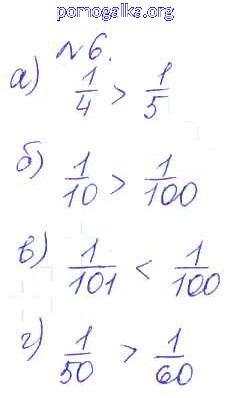 pomogalka.org
№6.
а) 1/4 > 1/5
б) 1/10 > 1/100
в) 1/101 < 1/100
г) 1/50 > 1/60